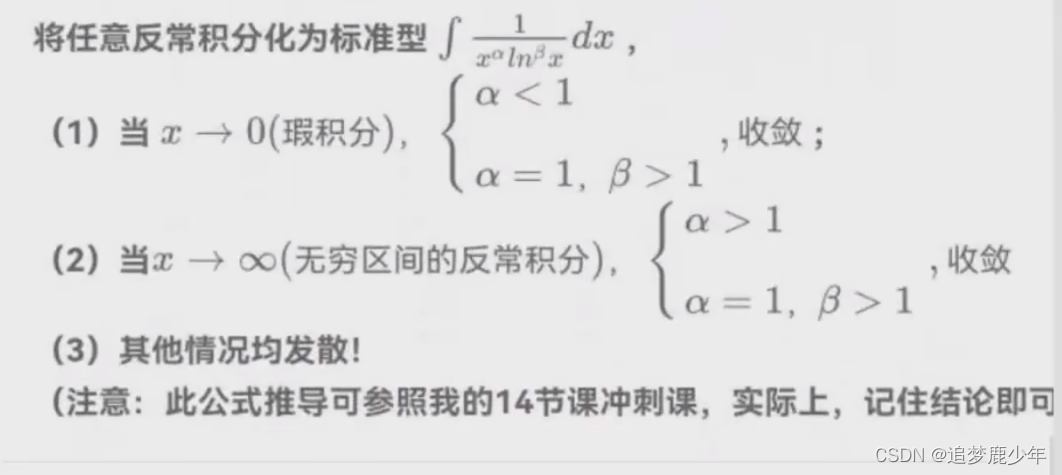 将任意反常积分化为标准型 ∫ 1/(x^α ln^β x) dx ，
（1）当 x → 0(瑕积分)， { α < 1 ; α = 1, β > 1 ,收敛；
（2）当x → ∞(无穷区间的反常积分)， { α > 1 ; α = 1, β > 1 ,收敛
（3）其他情况均发散！
（注意：此公式推导可参照我的14节课冲刺课，实际上，记住结论即可
CSDN @追梦鹿少年